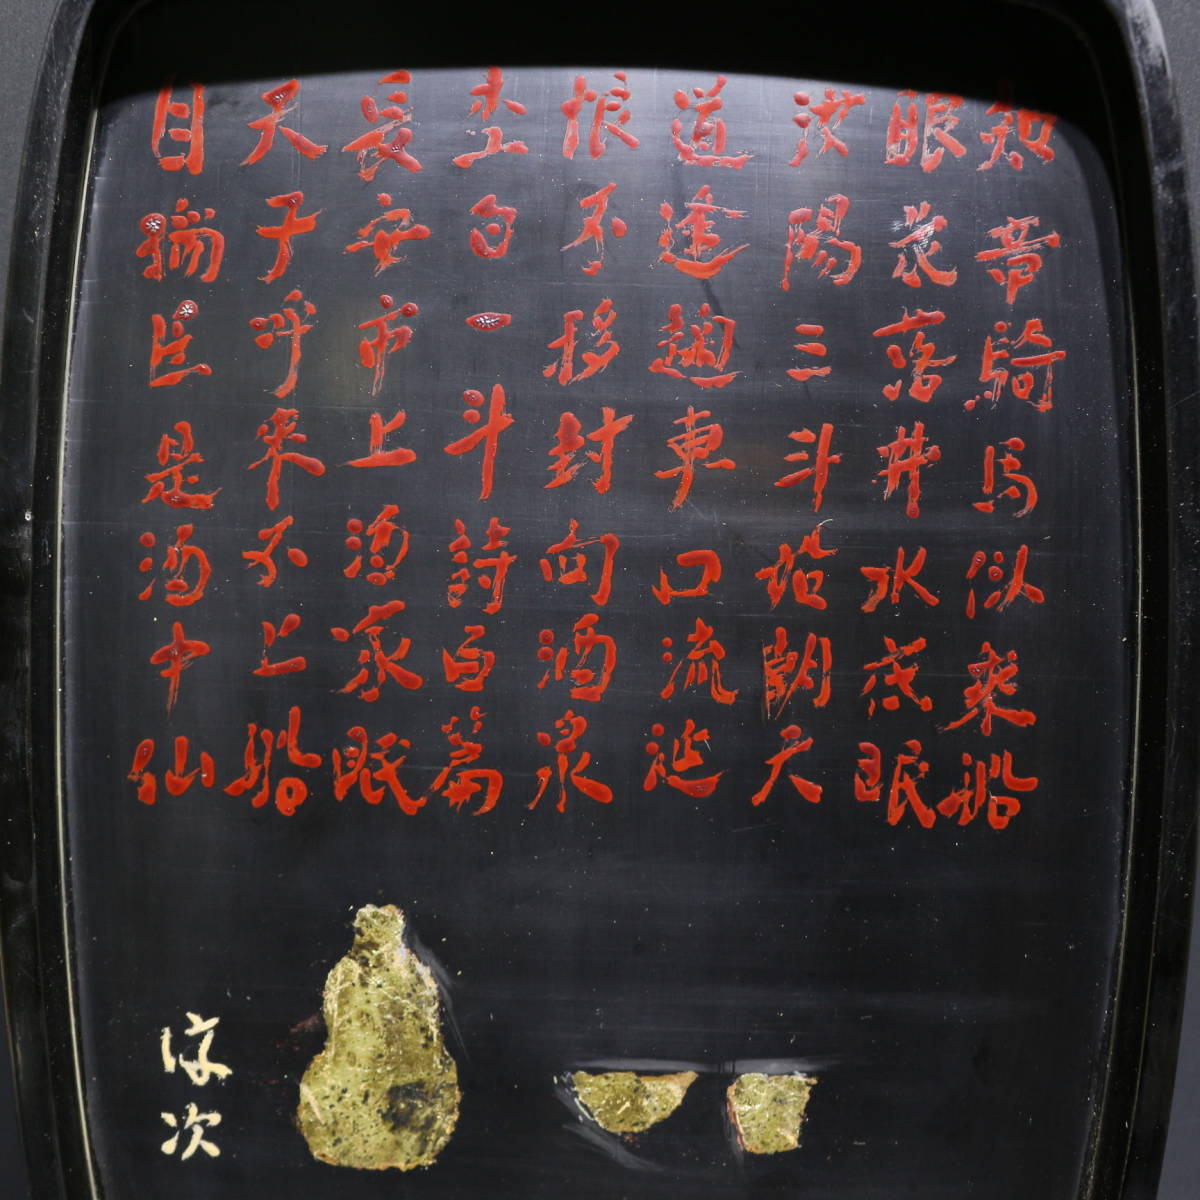 知章騎馬似乗船
眼花落井水底眠
汝陽三斗始朝天
道逢麹車口流涎
恨不移封向酒泉
李白一斗詩百篇
長安市上酒家眠
天子呼来不上船
自稱臣是酒中仙
次